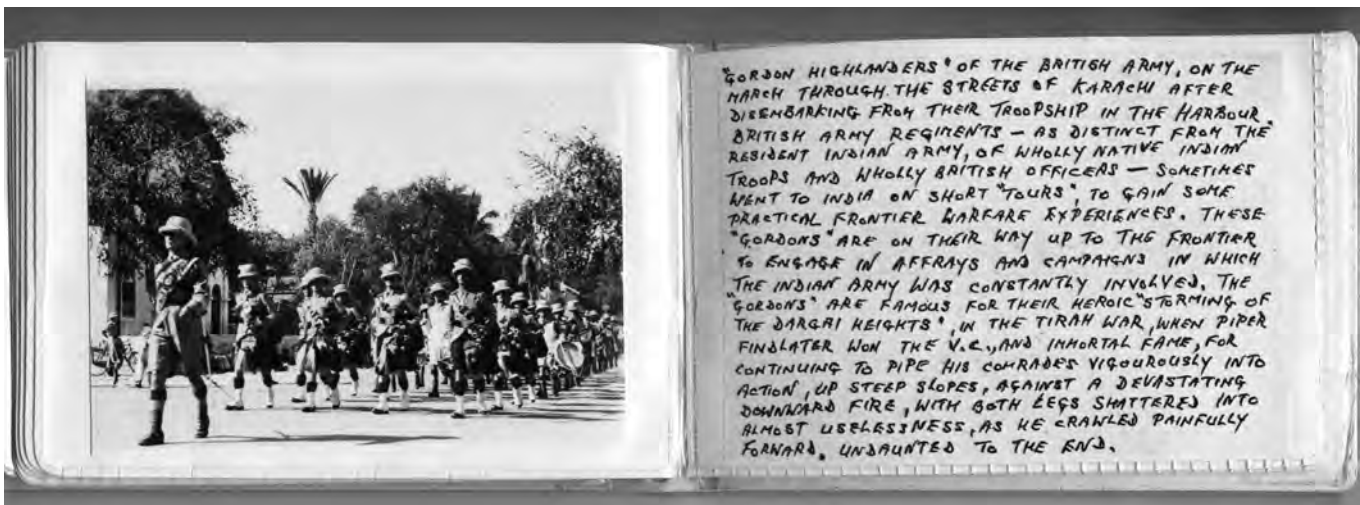 "GORDON HIGHLANDERS" OF THE BRITISH ARMY, ON THE
MARCH THROUGH THE STREETS OF KARACHI AFTER
DISEMBARKING FROM THEIR TROOPSHIP IN THE HARBOUR.
BRITISH ARMY REGIMENTS — AS DISTINCT FROM THE
RESIDENT INDIAN ARMY, OF WHOLLY NATIVE INDIAN
TROOPS AND WHOLLY BRITISH OFFICERS — SOMETIMES
WENT TO INDIA ON SHORT "TOURS", TO GAIN SOME
PRACTICAL FRONTIER WARFARE EXPERIENCES. THESE
"GORDONS" ARE ON THEIR WAY UP TO THE FRONTIER
TO ENGAGE IN AFFRAYS AND CAMPAIGNS IN WHICH
THE INDIAN ARMY WAS CONSTANTLY INVOLVED. THE
"GORDONS" ARE FAMOUS FOR THEIR HEROIC "STORMING OF
THE DARGAI HEIGHTS", IN THE TIRAH WAR, WHEN PIPER
FINDLATER WON THE V.C., AND IMMORTAL FAME, FOR
CONTINUING TO PIPE HIS COMRADES VIGOUROUSLY INTO
ACTION, UP STEEP SLOPES, AGAINST A DEVASTATING
DOWNWARD FIRE, WITH BOTH LEGS SHATTERED INTO
ALMOST USELESSNESS, AS HE CRAWLED PAINFULLY
FORWARD, UNDAUNTED TO THE END.